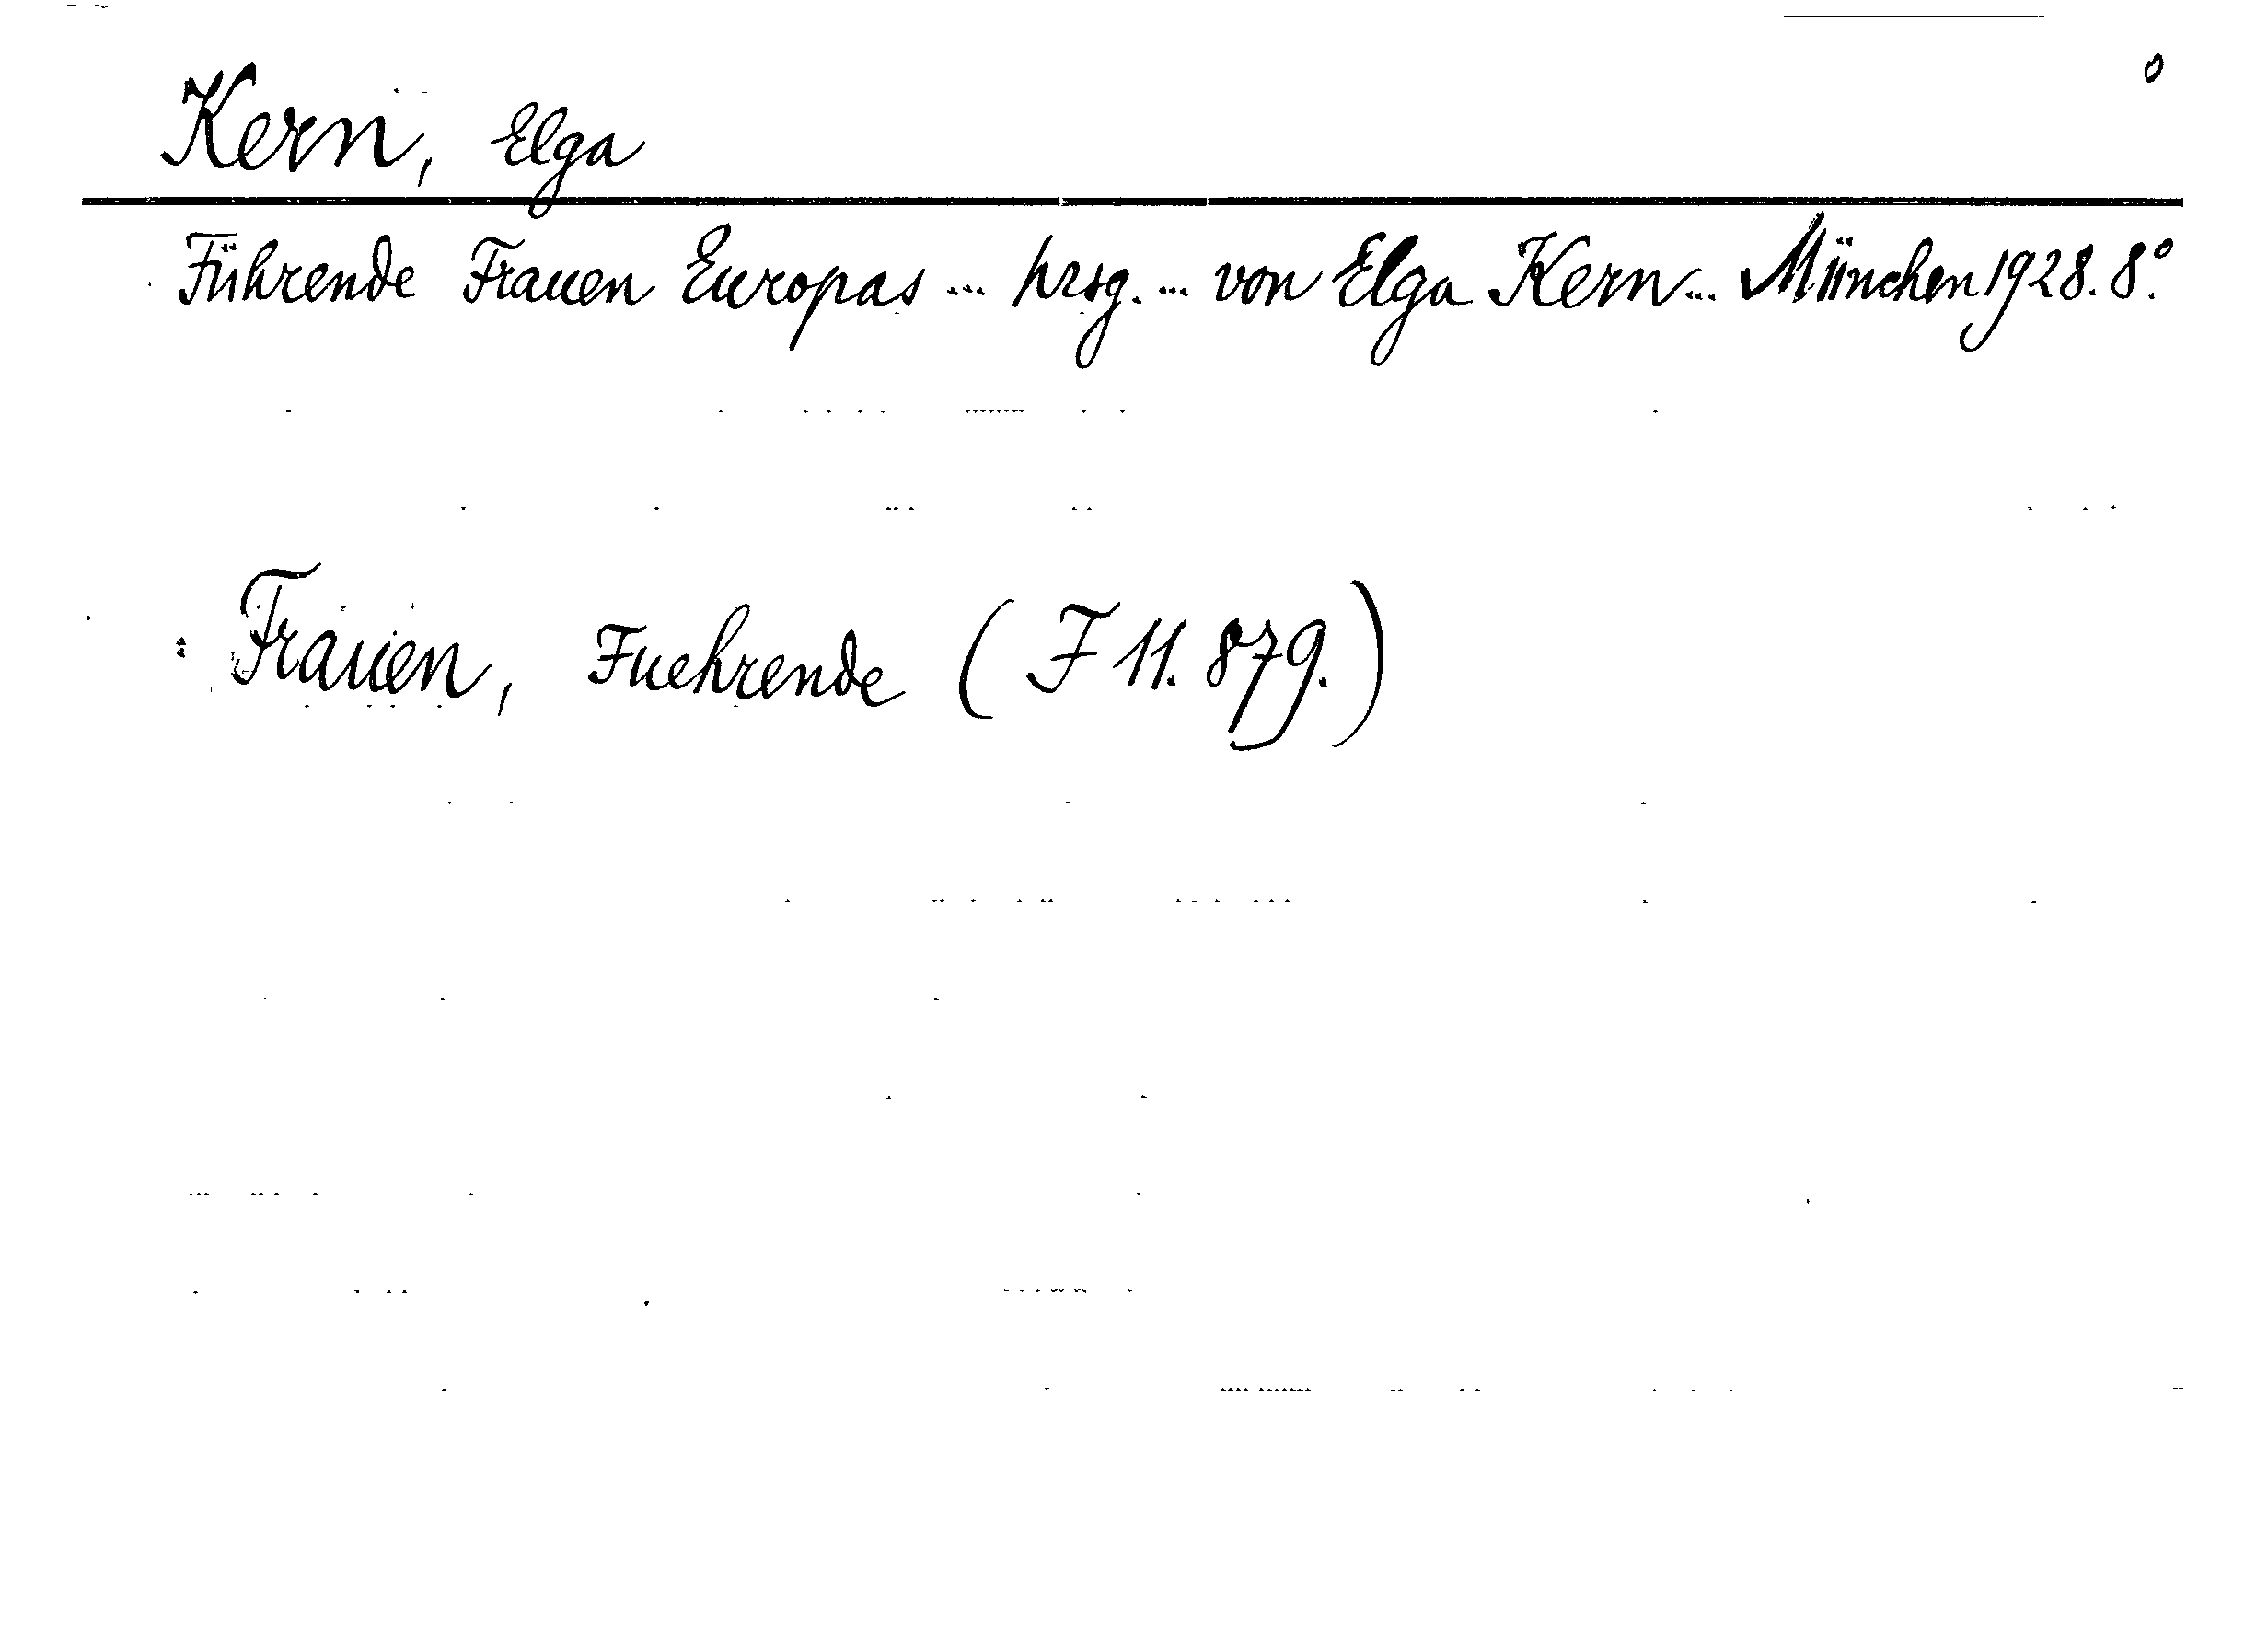 o
Kern, Elga
Führende Frauen Europas ... hrsg. ... von Elga Kern ... München 1928. 8°.
Frauen, Fuehrende (F 11.879.)